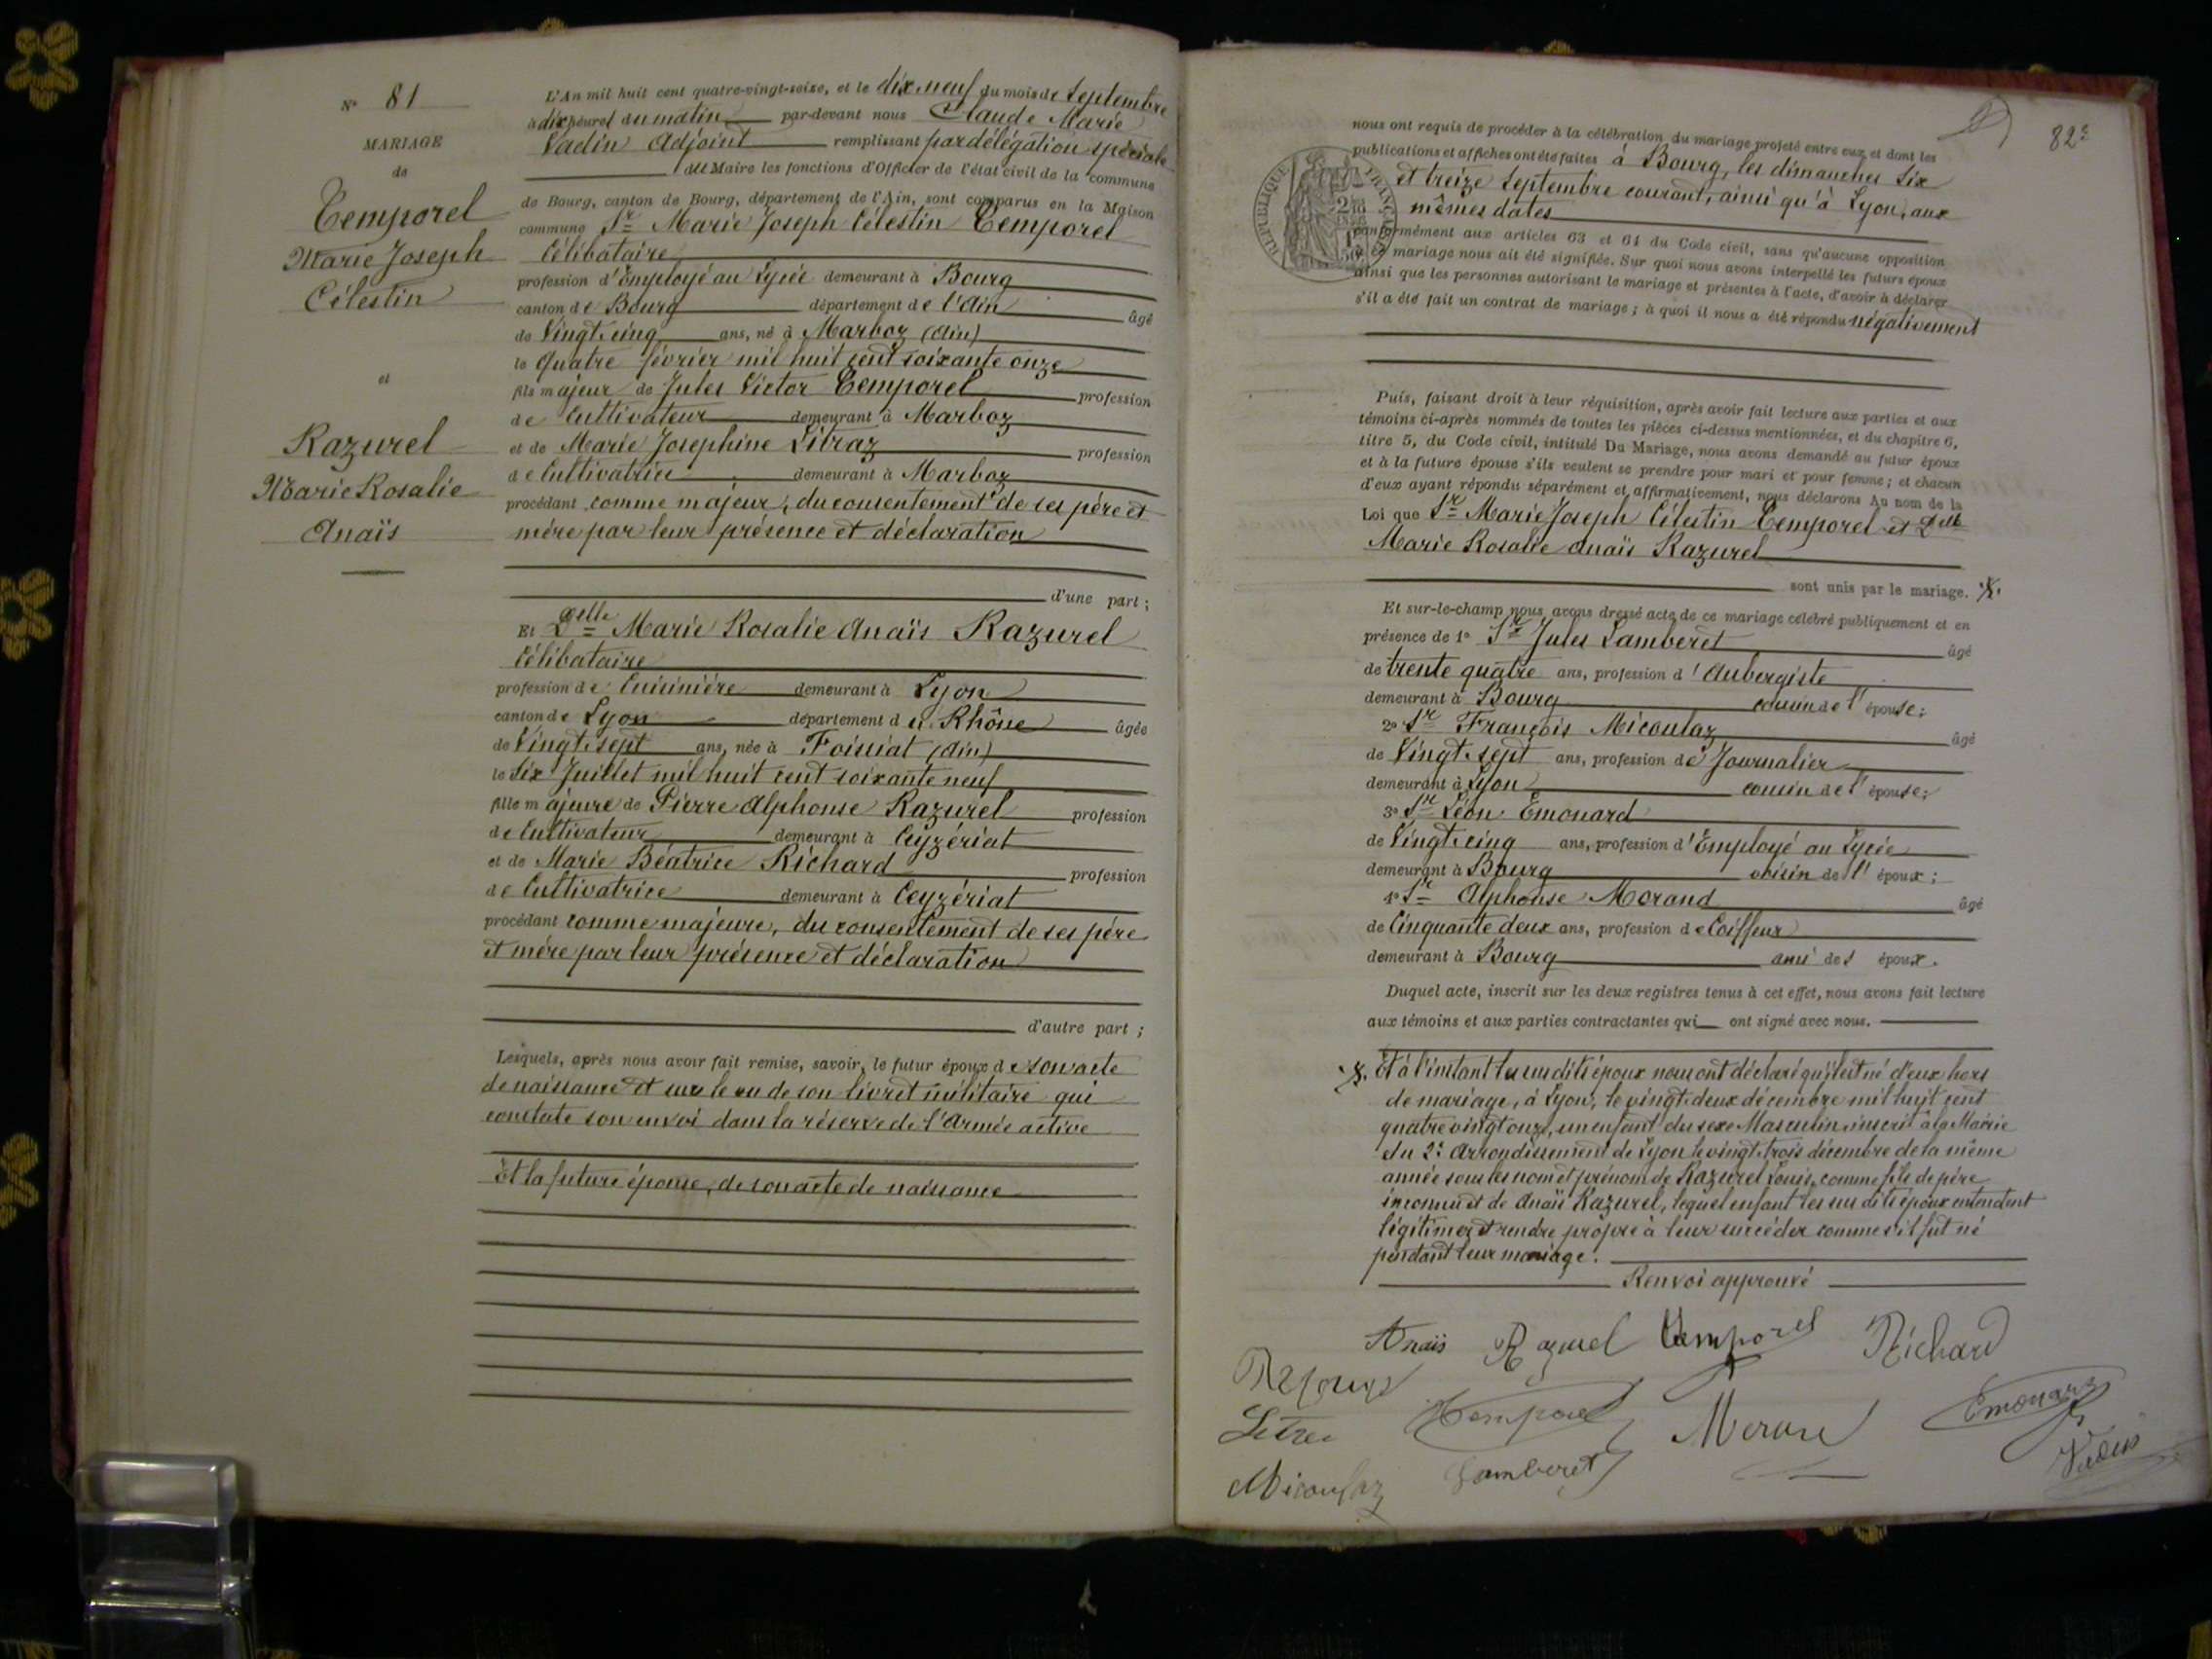 N° 81
MARIAGE
de
Temporel
Marie Joseph
Célestin
et
Razurel
Marie Rosalie
Anaïs
L'An mil huit cent quatre-vingt-seize, et le dix neuf du mois de Septembre
à dix heures du matin par-devant nous Claude Marie
Vadin Adjoint remplissant par délégation spéciale
du Maire les fonctions d'Officier de l'état civil de la commune
de Bourg, canton de Bourg, département de l'Ain, sont comparus en la Maison
commune Sr Marie Joseph Célestin Temporel
Célibataire
profession d'Employé au Lycée demeurant à Bourg
canton de Bourg département de l'Ain âgé
de Vingt cinq ans, né à Marboz (Ain)
le Quatre février mil huit cent soixante onze
fils majeur de Jules Victor Temporel profession
de Cultivateur demeurant à Marboz
et de Marie Josephine Litraz profession
de Cultivatrice demeurant à Marboz
procédant comme majeur, du consentement de ses père et
mère par leur présence et déclaration
d'une part ;
Et Delle Marie Rosalie Anaïs Razurel
Célibataire
profession de Cuisinière demeurant à Lyon
canton de Lyon département du Rhône âgée
de Vingt sept ans, née à Foissiat (Ain)
le Six Juillet mil huit cent soixante neuf
fille majeure de Pierre Alphonse Razurel profession
de Cultivateur demeurant à Ceyzériat
et de Marie Béatrice Richard profession
de Cultivatrice demeurant à Ceyzériat
procédant comme majeure, du consentement de ses père
et mère par leur présence et déclaration
d'autre part ;
Lesquels, après nous avoir fait remise, savoir, le futur époux de son acte
de naissance et sur le vu de son livret militaire qui
constate son envoi dans la réserve de l'Armée active
Et la future épouse, de son acte de naissance
82e
RÉPUBLIQUE FRANÇAISE
nous ont requis de procéder à la célébration du mariage projeté entre eux et dont les
publications et affiches ont été faites à Bourg, les dimanches Six
et treize Septembre courant, ainsi qu'à Lyon, aux
mêmes dates
conformément aux articles 63 et 64 du Code civil, sans qu'aucune opposition
à ce mariage nous ait été signifiée. Sur quoi nous avons interpellé les futurs époux
ainsi que les personnes autorisant le mariage et présentes à l'acte, d'avoir à déclarer
s'il a été fait un contrat de mariage ; à quoi il nous a été répondu négativement
Puis, faisant droit à leur réquisition, après avoir fait lecture aux parties et aux
témoins ci-après nommés de toutes les pièces ci-dessus mentionnées, et du chapitre 6,
titre 5, du Code civil, intitulé Du Mariage, nous avons demandé au futur époux
et à la future épouse s'ils veulent se prendre pour mari et pour femme ; et chacun
d'eux ayant répondu séparément et affirmativement, nous déclarons Au nom de la
Loi que Sr Marie Joseph Célestin Temporel et Delle
Marie Rosalie Anaïs Razurel
sont unis par le mariage.
Et sur-le-champ nous avons dressé acte de ce mariage célébré publiquement et en
présence de 1° Sr Jules Lamberet âgé
de trente quatre ans, profession d'Aubergiste
demeurant à Bourg cousin de l'épouse ;
2° Sr François Micoulaz âgé
de Vingt sept ans, profession de Journalier
demeurant à Lyon cousin de l'épouse ;
3° Sr Léon Emonard
de Vingt cinq ans, profession d'Employé au Lycée
demeurant à Bourg voisin de l'époux ;
4° Sr Alphonse Morand âgé
de Cinquante deux ans, profession de Coiffeur
demeurant à Bourg ami des époux.
Duquel acte, inscrit sur les deux registres tenus à cet effet, nous avons fait lecture
aux témoins et aux parties contractantes qui ont signé avec nous.
Et à l'instant les sus dits époux nous ont déclaré qu'il est né d'eux hors
de mariage, à Lyon, le vingt deux décembre mil huit cent
quatre vingt onze, un enfant du sexe Masculin inscrit à la Mairie
du 2e Arrondissement de Lyon le vingt trois décembre de la même
année sous les nom et prénom de Razurel Louis, comme fils de père
inconnu et de Anaïs Razurel, lequel enfant les sus dits époux entendent
légitimer et rendre propre à leur succéder comme s'il fut né
pendant leur mariage.
Renvoi approuvé
Anaïs Razurel Temporel Richard
Temporel Morand Emonard
Micoulaz Lamberet Vadin